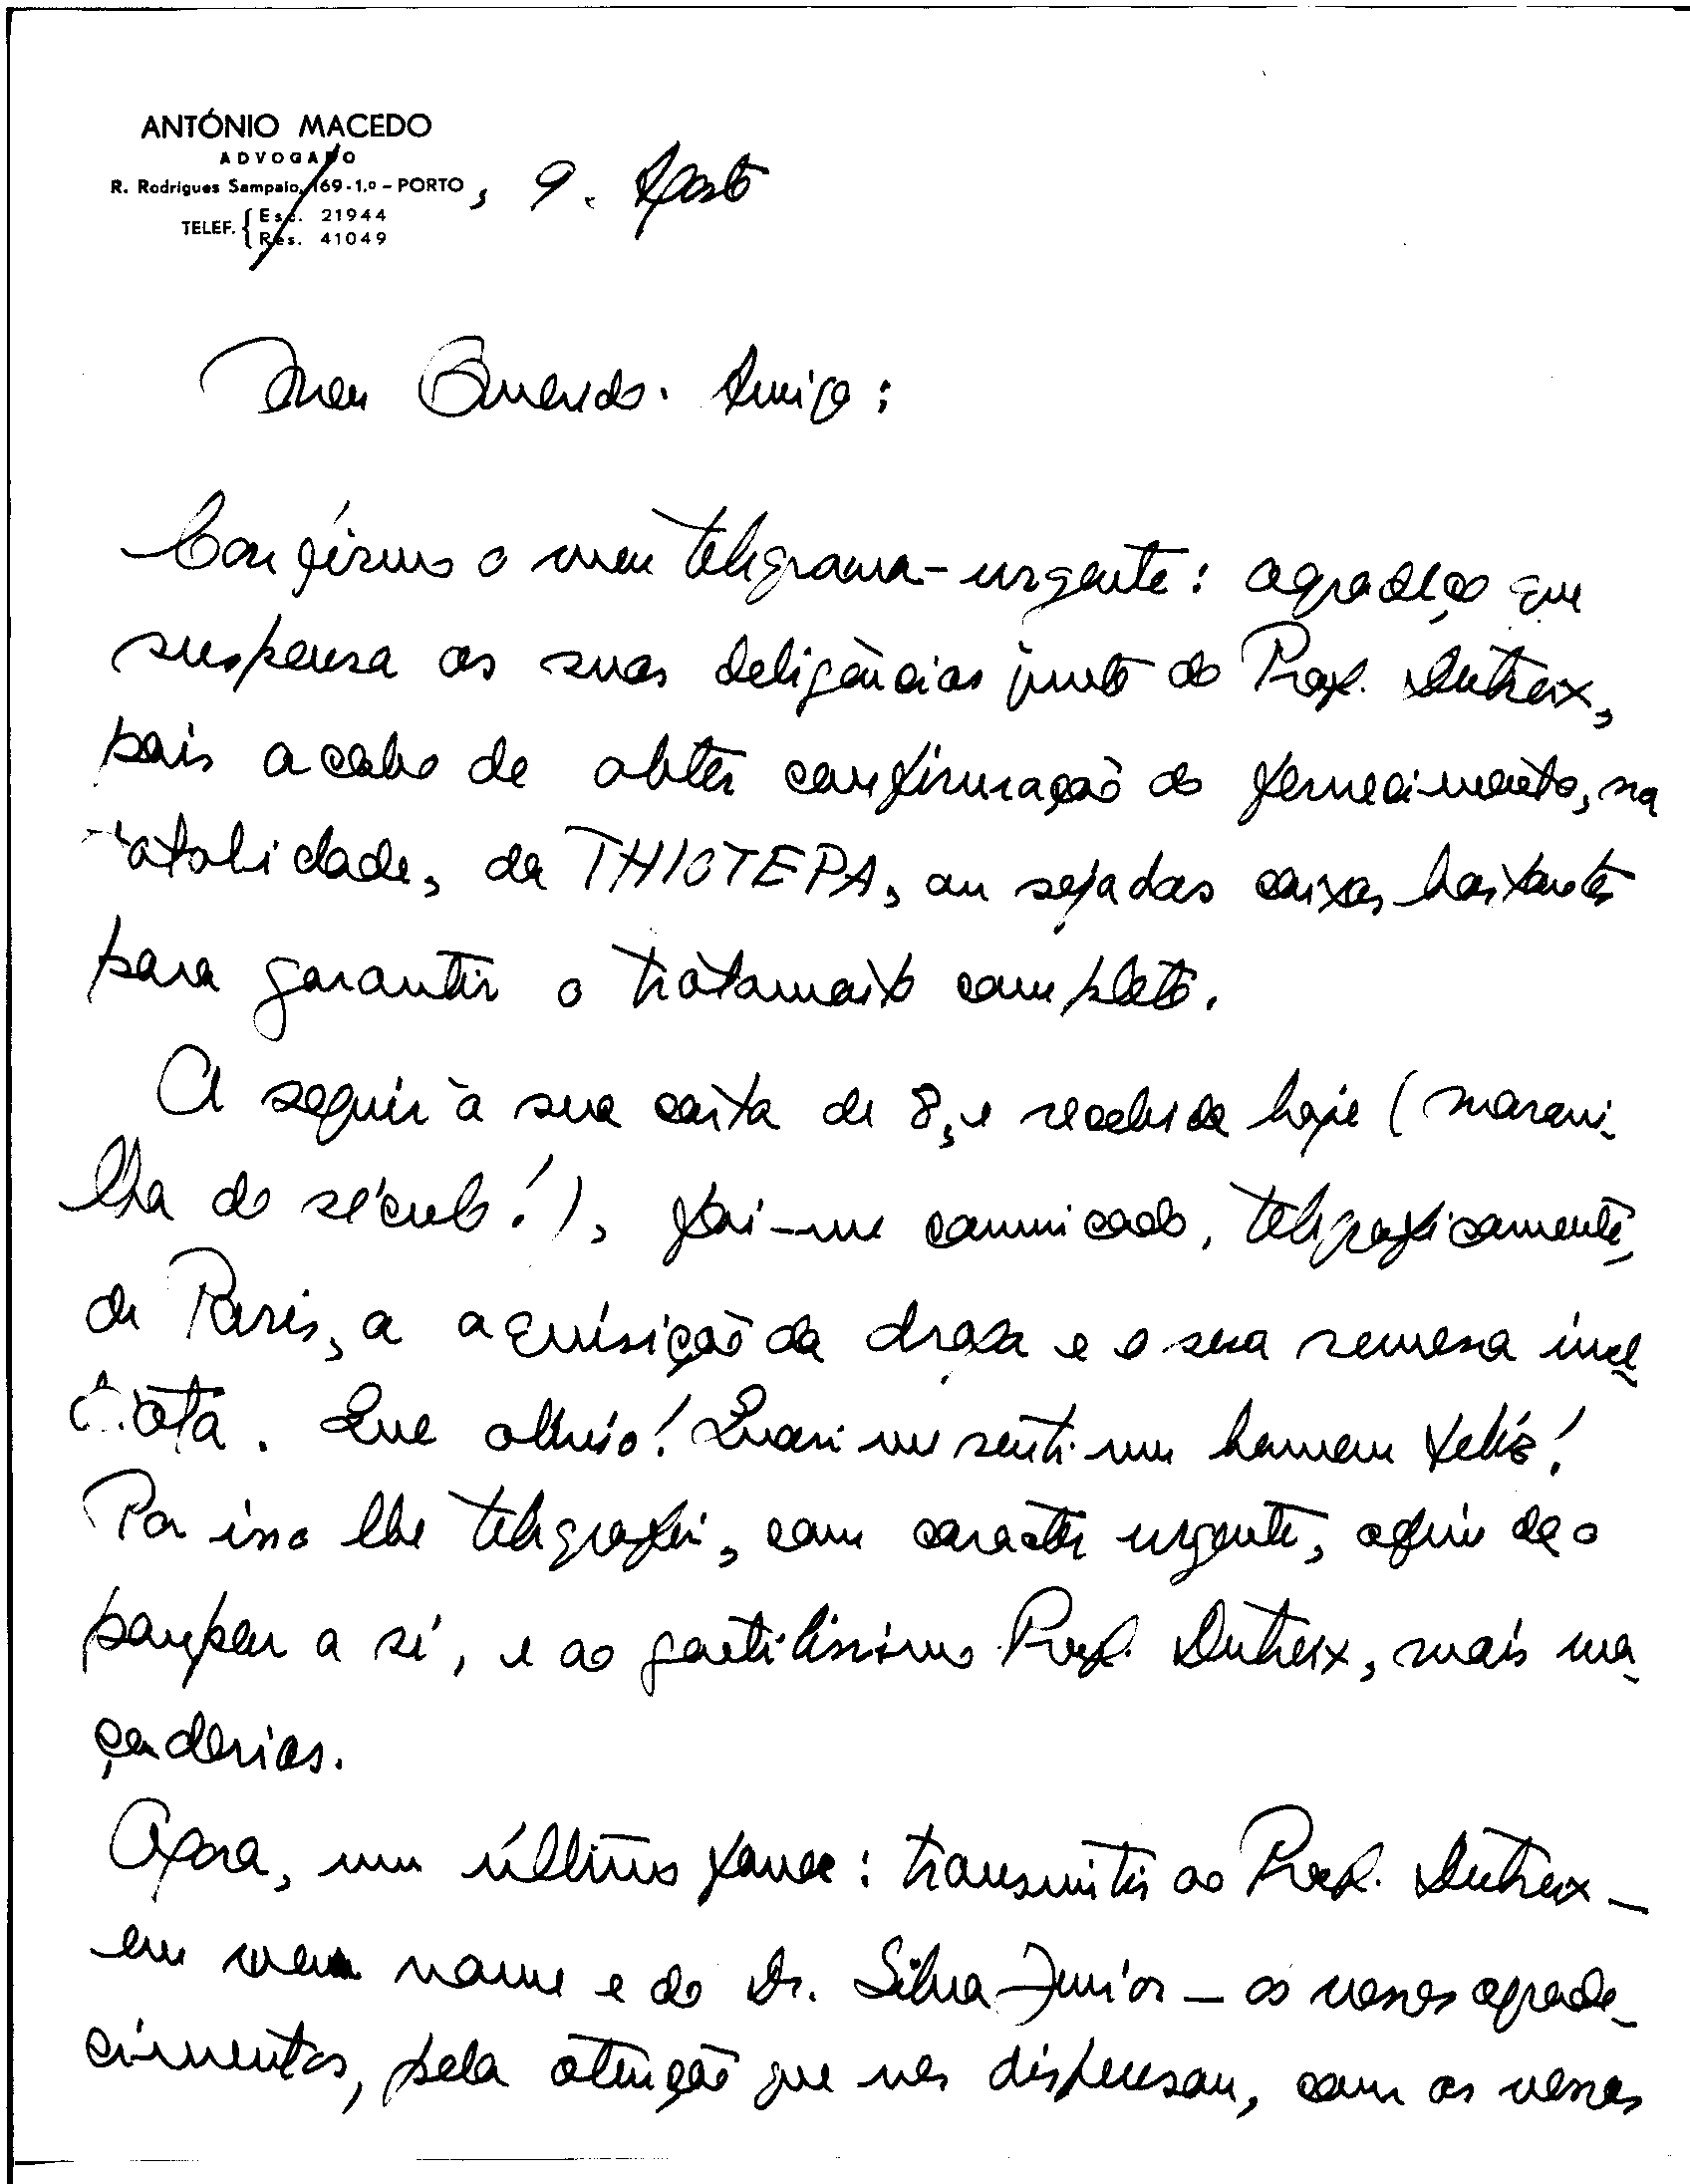 ANTÓNIO MACEDO
ADVOGADO
R. Rodrigues Sampaio, 169-1.º - PORTO, 9. Agosto
TELEF. { Esc. 21944
Res. 41049
Meu Querido Amigo:
Confirmo o meu telegrama-urgente: agradeço que
suspensa as suas deligências junto do Prof. Dutreix,
pois acabo de obter confirmação do fornecimento, na
totalidade, da THIOTEPA, ou seja das caixas bastantes
para garantir o tratamento completo.
A seguir à sua carta de 8, e recebida hoje (maravi-
lha do século!), foi-me comunicado, telegraficamente,
de Paris, a aquisição da droga e a sua remessa ime-
diata. Que alívio! Quasi me senti um homem feliz!
Por isso lhe telegrafei, com caracter urgente, afim de o
poupar a si, e ao gentilíssimo Prof. Dutreix, mais ma-
çadorias.
Agora, um último favor: transmitir ao Prof. Dutreix -
em meu nome e do Dr. Silva Junior - os nossos agrade-
cimentos, pela atenção que nos dispensou, com os nossos